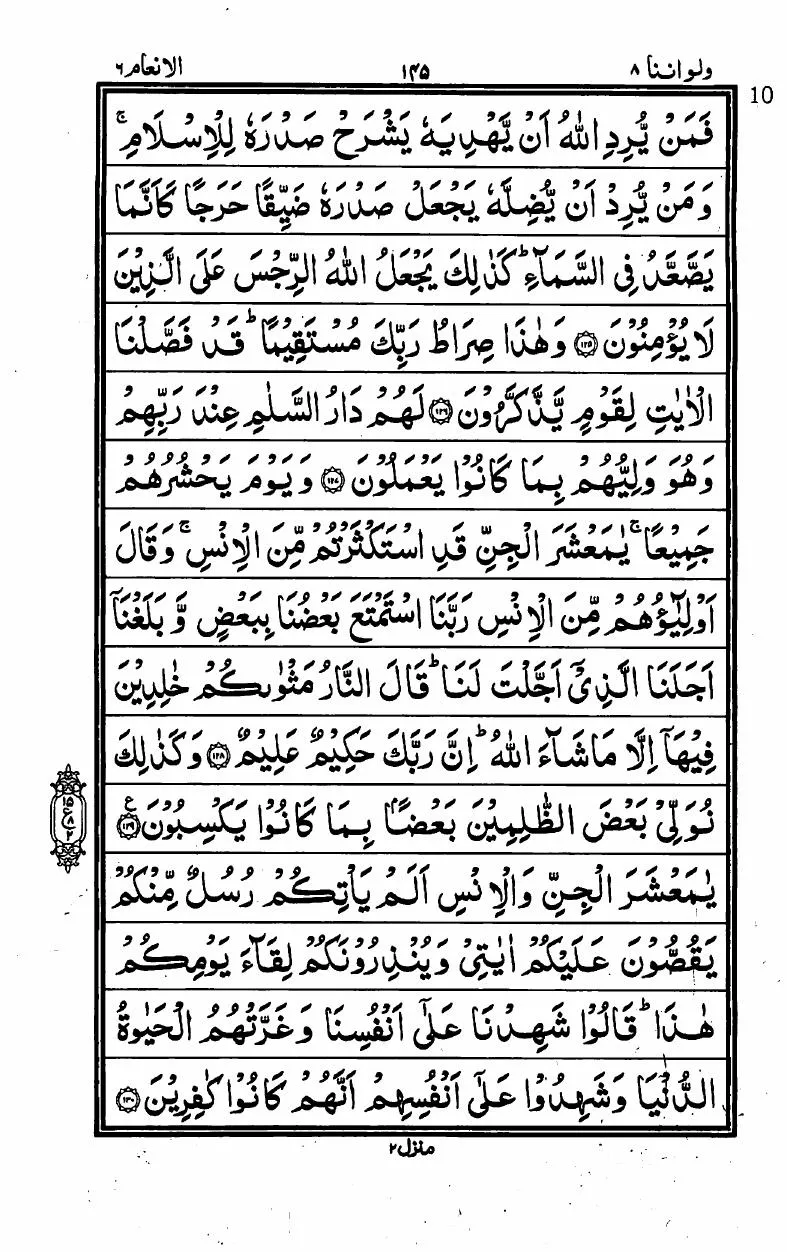 ولواننا ٨ ١٤٥ الانعام ٦
10
فَمَنْ يُّرِدِ اللّٰهُ اَنْ يَّهْدِيَهٗ يَشْرَحْ صَدْرَهٗ لِلْاِسْلَامِ ۚ
وَمَنْ يُّرِدْ اَنْ يُّضِلَّهٗ يَجْعَلْ صَدْرَهٗ ضَيِّقًا حَرَجًا كَاَنَّمَا
يَصَّعَّدُ فِى السَّمَآءِ ؕ كَذٰلِكَ يَجْعَلُ اللّٰهُ الرِّجْسَ عَلَى الَّذِيْنَ
لَا يُؤْمِنُوْنَ ﴿١٢٥﴾ وَهٰذَا صِرَاطُ رَبِّكَ مُسْتَقِيْمًا ؕ قَدْ فَصَّلْنَا
الْاٰيٰتِ لِقَوْمٍ يَّذَّكَّرُوْنَ ﴿١٢٦﴾ لَهُمْ دَارُ السَّلٰمِ عِنْدَ رَبِّهِمْ
وَهُوَ وَلِيُّهُمْ بِمَا كَانُوْا يَعْمَلُوْنَ ﴿١٢٧﴾ وَيَوْمَ يَحْشُرُهُمْ
جَمِيْعًا ۚ يٰمَعْشَرَ الْجِنِّ قَدِ اسْتَكْثَرْتُمْ مِّنَ الْاِنْسِ ۚ وَقَالَ
اَوْلِيٰٓؤُهُمْ مِّنَ الْاِنْسِ رَبَّنَا اسْتَمْتَعَ بَعْضُنَا بِبَعْضٍ وَّبَلَغْنَاۤ
اَجَلَنَا الَّذِيْۤ اَجَّلْتَ لَنَا ؕ قَالَ النَّارُ مَثْوٰىكُمْ خٰلِدِيْنَ
فِيْهَاۤ اِلَّا مَا شَآءَ اللّٰهُ ؕ اِنَّ رَبَّكَ حَكِيْمٌ عَلِيْمٌ ﴿١٢٨﴾ وَكَذٰلِكَ
نُوَلِّيْ بَعْضَ الظّٰلِمِيْنَ بَعْضًاۢ بِمَا كَانُوْا يَكْسِبُوْنَ ﴿١٢٩﴾ ع
١٥ ع ٨ ٢
يٰمَعْشَرَ الْجِنِّ وَالْاِنْسِ اَلَمْ يَاْتِكُمْ رُسُلٌ مِّنْكُمْ
يَقُصُّوْنَ عَلَيْكُمْ اٰيٰتِيْ وَيُنْذِرُوْنَكُمْ لِقَآءَ يَوْمِكُمْ
هٰذَا ؕ قَالُوْا شَهِدْنَا عَلٰۤى اَنْفُسِنَا وَغَرَّتْهُمُ الْحَيٰوةُ
الدُّنْيَا وَشَهِدُوْا عَلٰۤى اَنْفُسِهِمْ اَنَّهُمْ كَانُوْا كٰفِرِيْنَ ﴿١٣٠﴾
منزل ٢